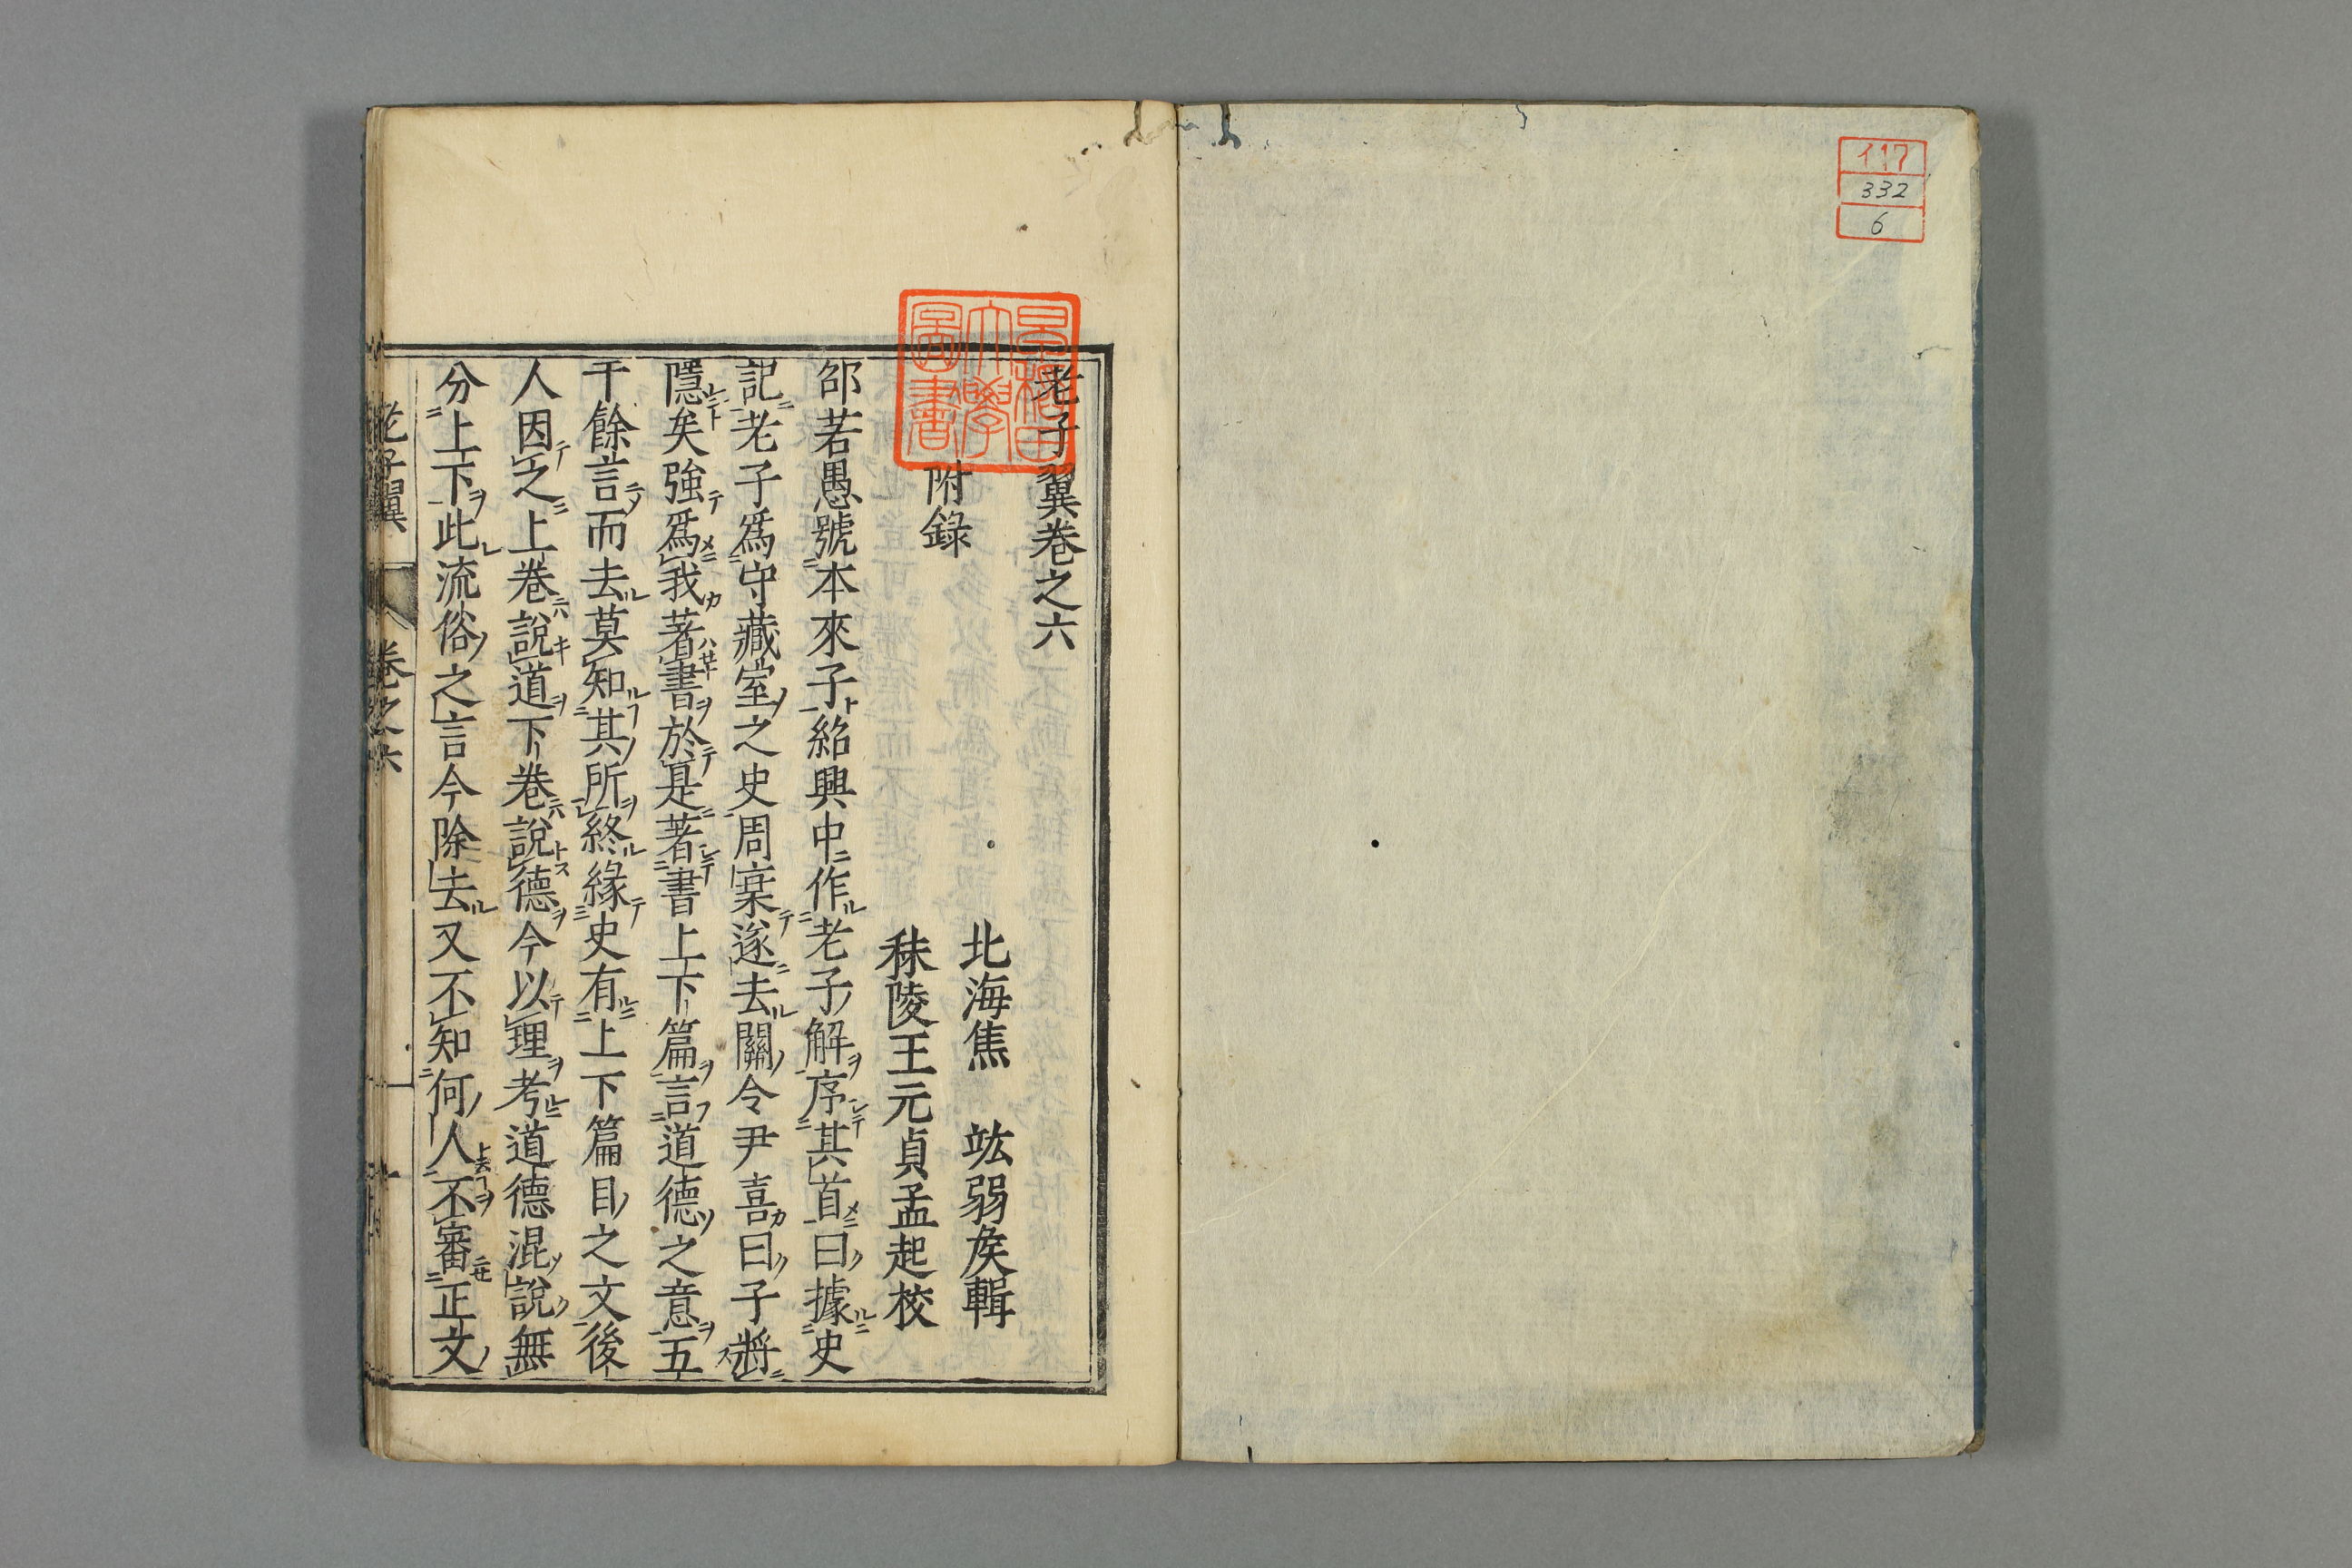 117
332
6
早稲田
大學
圖書
老子翼卷之六
北海焦　竑弱矦輯
附錄
秣陵王元貞孟起校
邵若愚號本來子紹興中作老子解序其首曰據史
記老子爲守藏室之史周衰遂去關令尹喜曰子將
隱矣強爲我著書於是著書上下篇言道德之意五
千餘言而去莫知其所終緣史有上下篇目之文後
人因之上卷說道下卷說德今以理考道德混說無
分上下此流俗之言今除去又不知何人不審正文
老子翼
卷之六